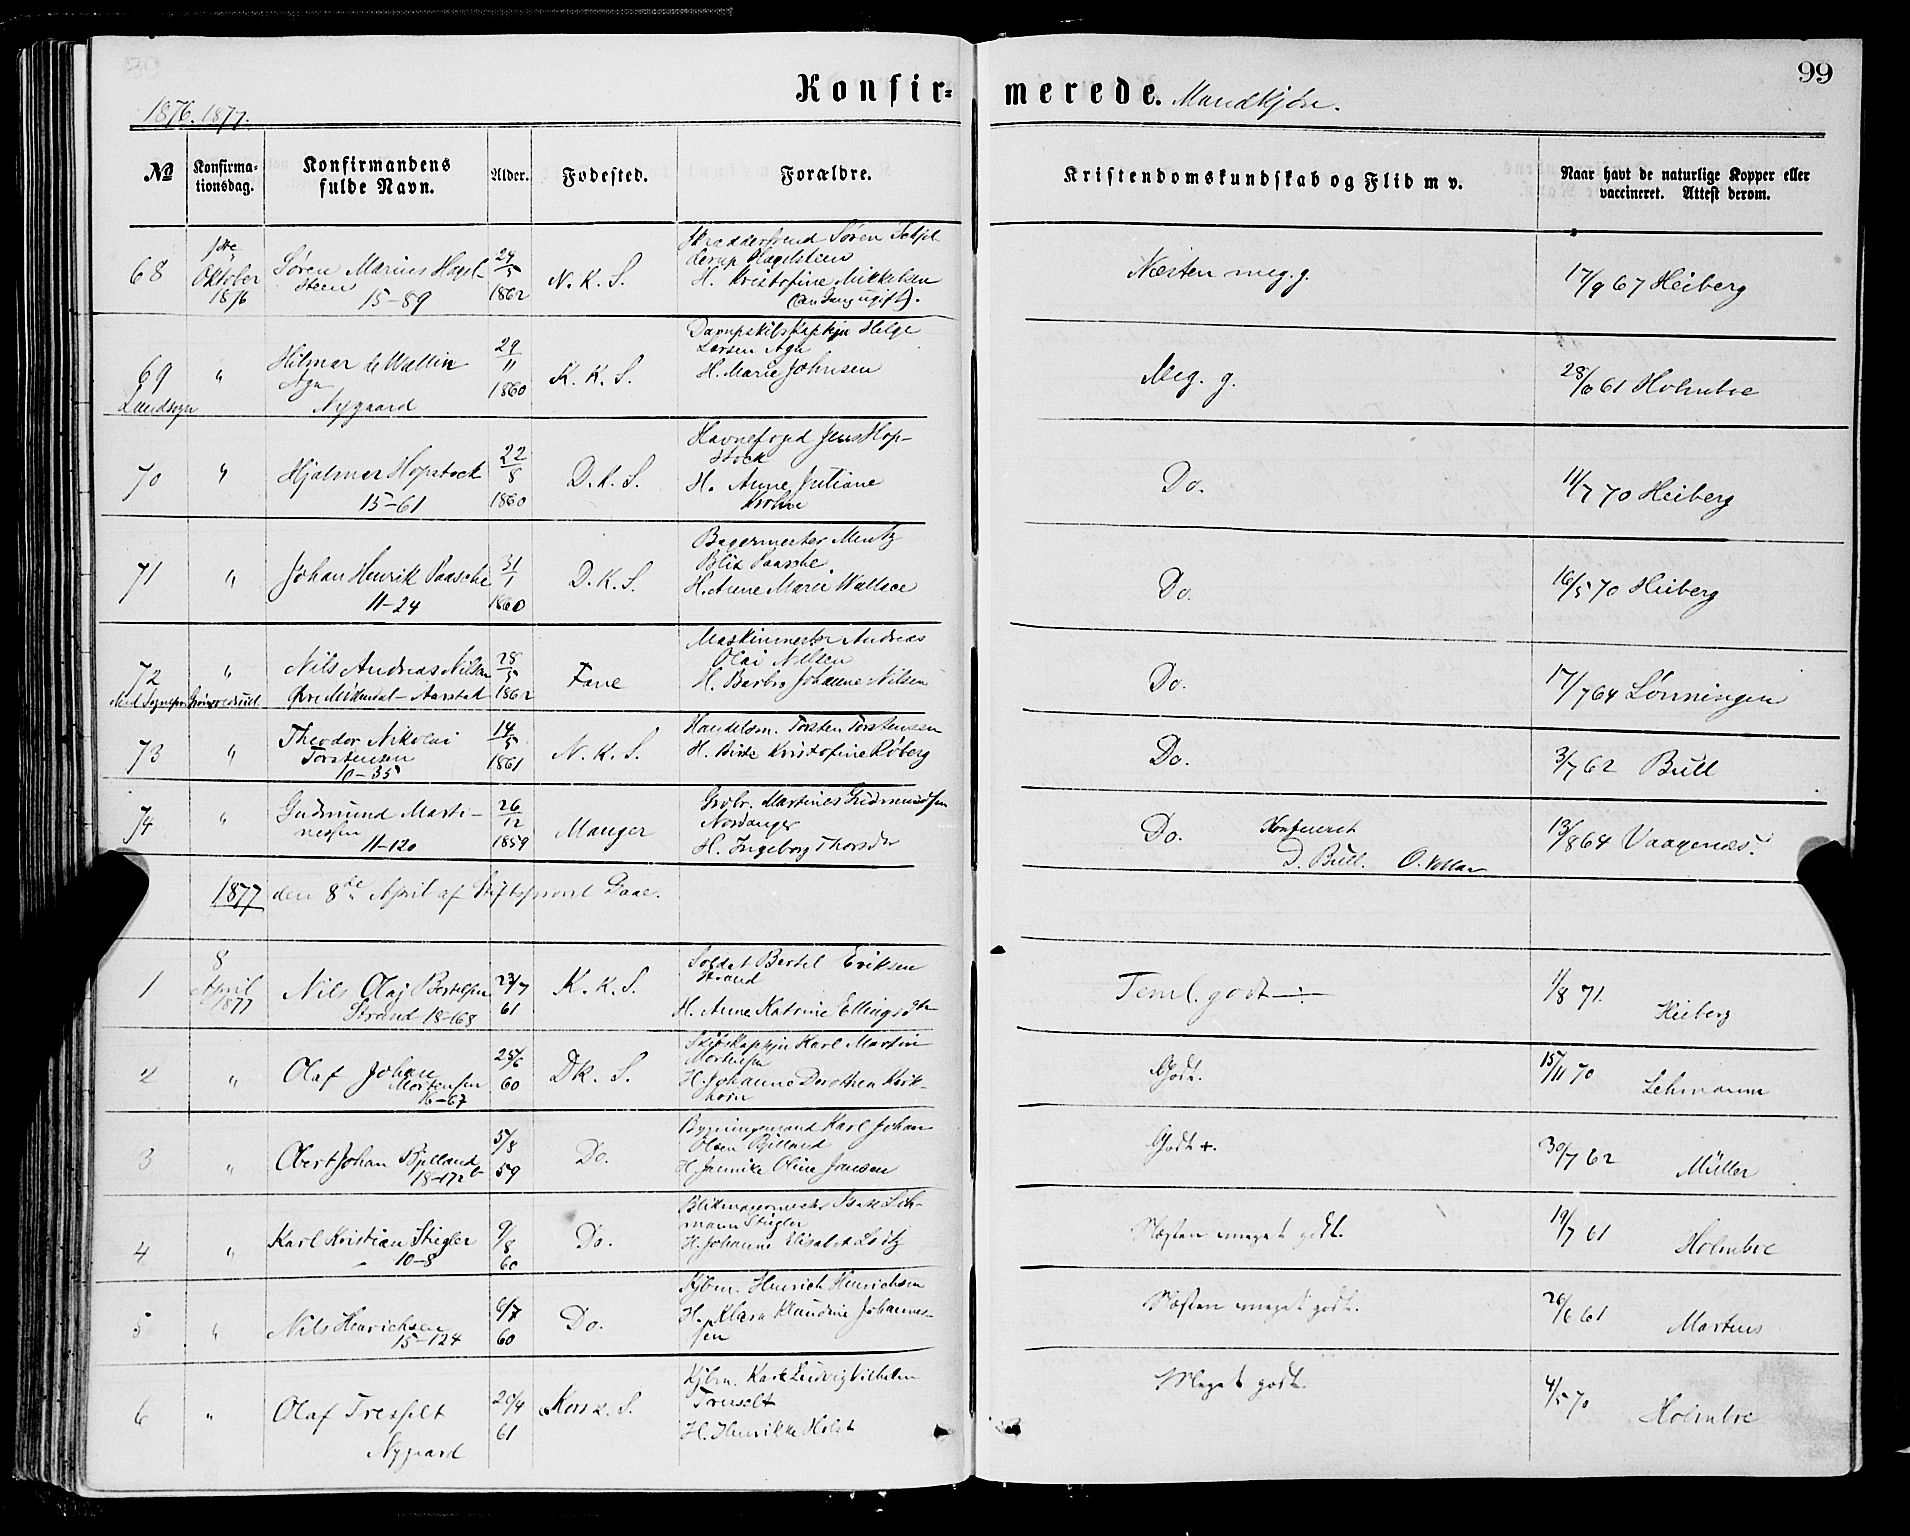 99
Konfir= merede. Mandkjøn.
1876. 1877.
No
Konfirma=
tionsdag.
Konfirmandens
fulde Navn.
Alder.
Fødested.
Forældre.
Kristendomskundskab og Flid m v.
Naar havt de naturlige Kopper eller
vaccineret. Attest derom.
68
1ste
Oktober
1876
Søren Marius Hagel-
steen
15-89
24/5
1862
N. K. S.
Søren
Hagelsteen
H. Kristofine Mikkelsen
ugift).
Næsten meg. g.
17/9 67 Heiberg
69
Landsogn
"
Hilmar de Wallin
Aga
Nygaard
29/11
1860
K. K. S.
Dampskibskaptejn Helge
Larsen Aga
H. Marie Johnsen
Meg. g.
61 Holmboe
70
"
Hjalmar Hopstock
15-61
22/8
1860
D. K. S.
Havnefoged Jens Hop-
stock
H. Anne Juliane
Krohn
Do.
11/7 70 Heiberg
71
"
Johan Henrik Paasche
11-24
31/1
1860
D. K. S.
Bagermester Mentz
Blix Paasche
H. Anne Marie Wallace
Do.
16/5 70 Heiberg
72
"
Nils Andreas Nilsen
Aarstad
28/5
1862
Fane
Maskinmester Andreas
Olai Nilsen
H. Barbro Johanne Nilsen
Do.
17/7 64 Lønningen
73
"
Theodor Nikolai
Torstensen
10-35
14/5
1861
N. K. S.
Handelsm. Torsten Torstensen
H. Birte Kristofine Røberg
Do.
3/7 62 Bull
74
"
Gudmund Marti-
nessen
11-120
26/12
1859
Manger
Grbr. Martines Gudmundsen
Nordanger
H. Ingeborg Thorsdr
Do.
Konfereret
D. Bull.
13/8 64 Vaagenæs.
1877 den 8de April af Stiftsprovst Daae.
1
8
April
1877
Nils Olaj Bertelsen
Strand 18-168
23/7
61
K. K. S.
Soldat Bertel Eriksen
Strand
H. Anne Katrine Ellingsdtr
Teml. godt
1/8 71.
Heiberg
2
"
Olaf Johan
Mortensen
16-67
25/6
60
D K. S.
Skibskaptejn Karl Martin
Mortensen
H. Johanne Dorothea Kirk-
horn
Godt.
15/11 70
Lehmann
3
"
Obert Johan Bjelland
18-172b
5/8
59
Do.
Bygningsmand Karl Johan
Olsen Bjelland
H. Jannike Oline Jansen
Godt +.
30/7 62
Müller
4
"
Karl Kristian Stiegler
10-8
9/8
60
Do.
Blikmagermester Isak Leh-
mann Stiegler
H. Johanne Elisabet
Næsten meget godt.
19/7 61
Holmboe
5
"
Nils Henrichsen
15-124
6/7
60
Do.
Kjbm. Henrich Henrichsen
H. Klara Klaudine Johannes-
sen
Næsten meget godt.
26/6 61
Martens
6
"
Olaf Tresselt
Nygaard
20/4
61
Kors K. S.
Kjbm. Karl Ludvig Vilhelm
Tresselt
H. Henrikke Holst
Meget godt.
4/5 70
Holmboe